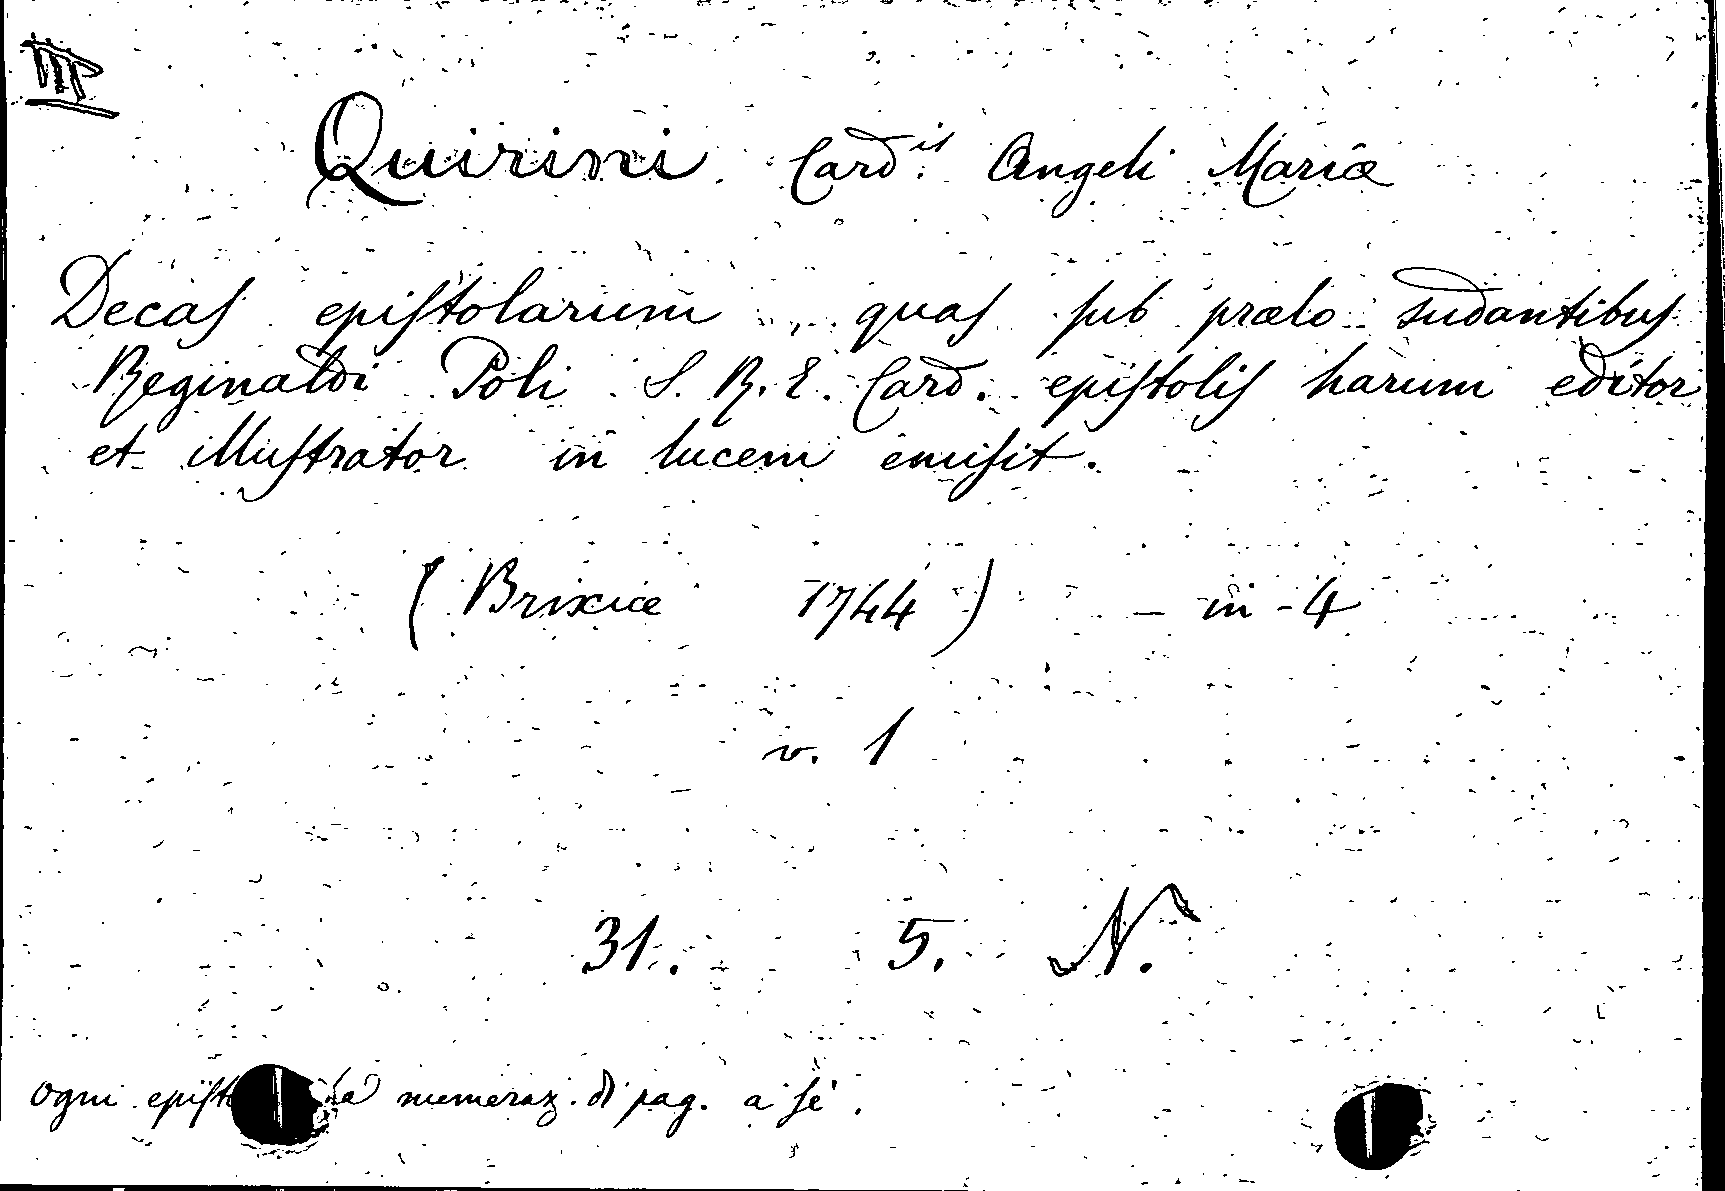 Quirini Card.is Angeli Mariæ
Decas epistolarum, quas sub prælo sudantibus
Reginaldi Poli S. R. E. Card. epistolis harum editor
et illustrator in lucem emisit.
(Brixiæ 1744) - in-4
v. 1
31. 5. N.
ogni ha numeraz. di pag. a sè.